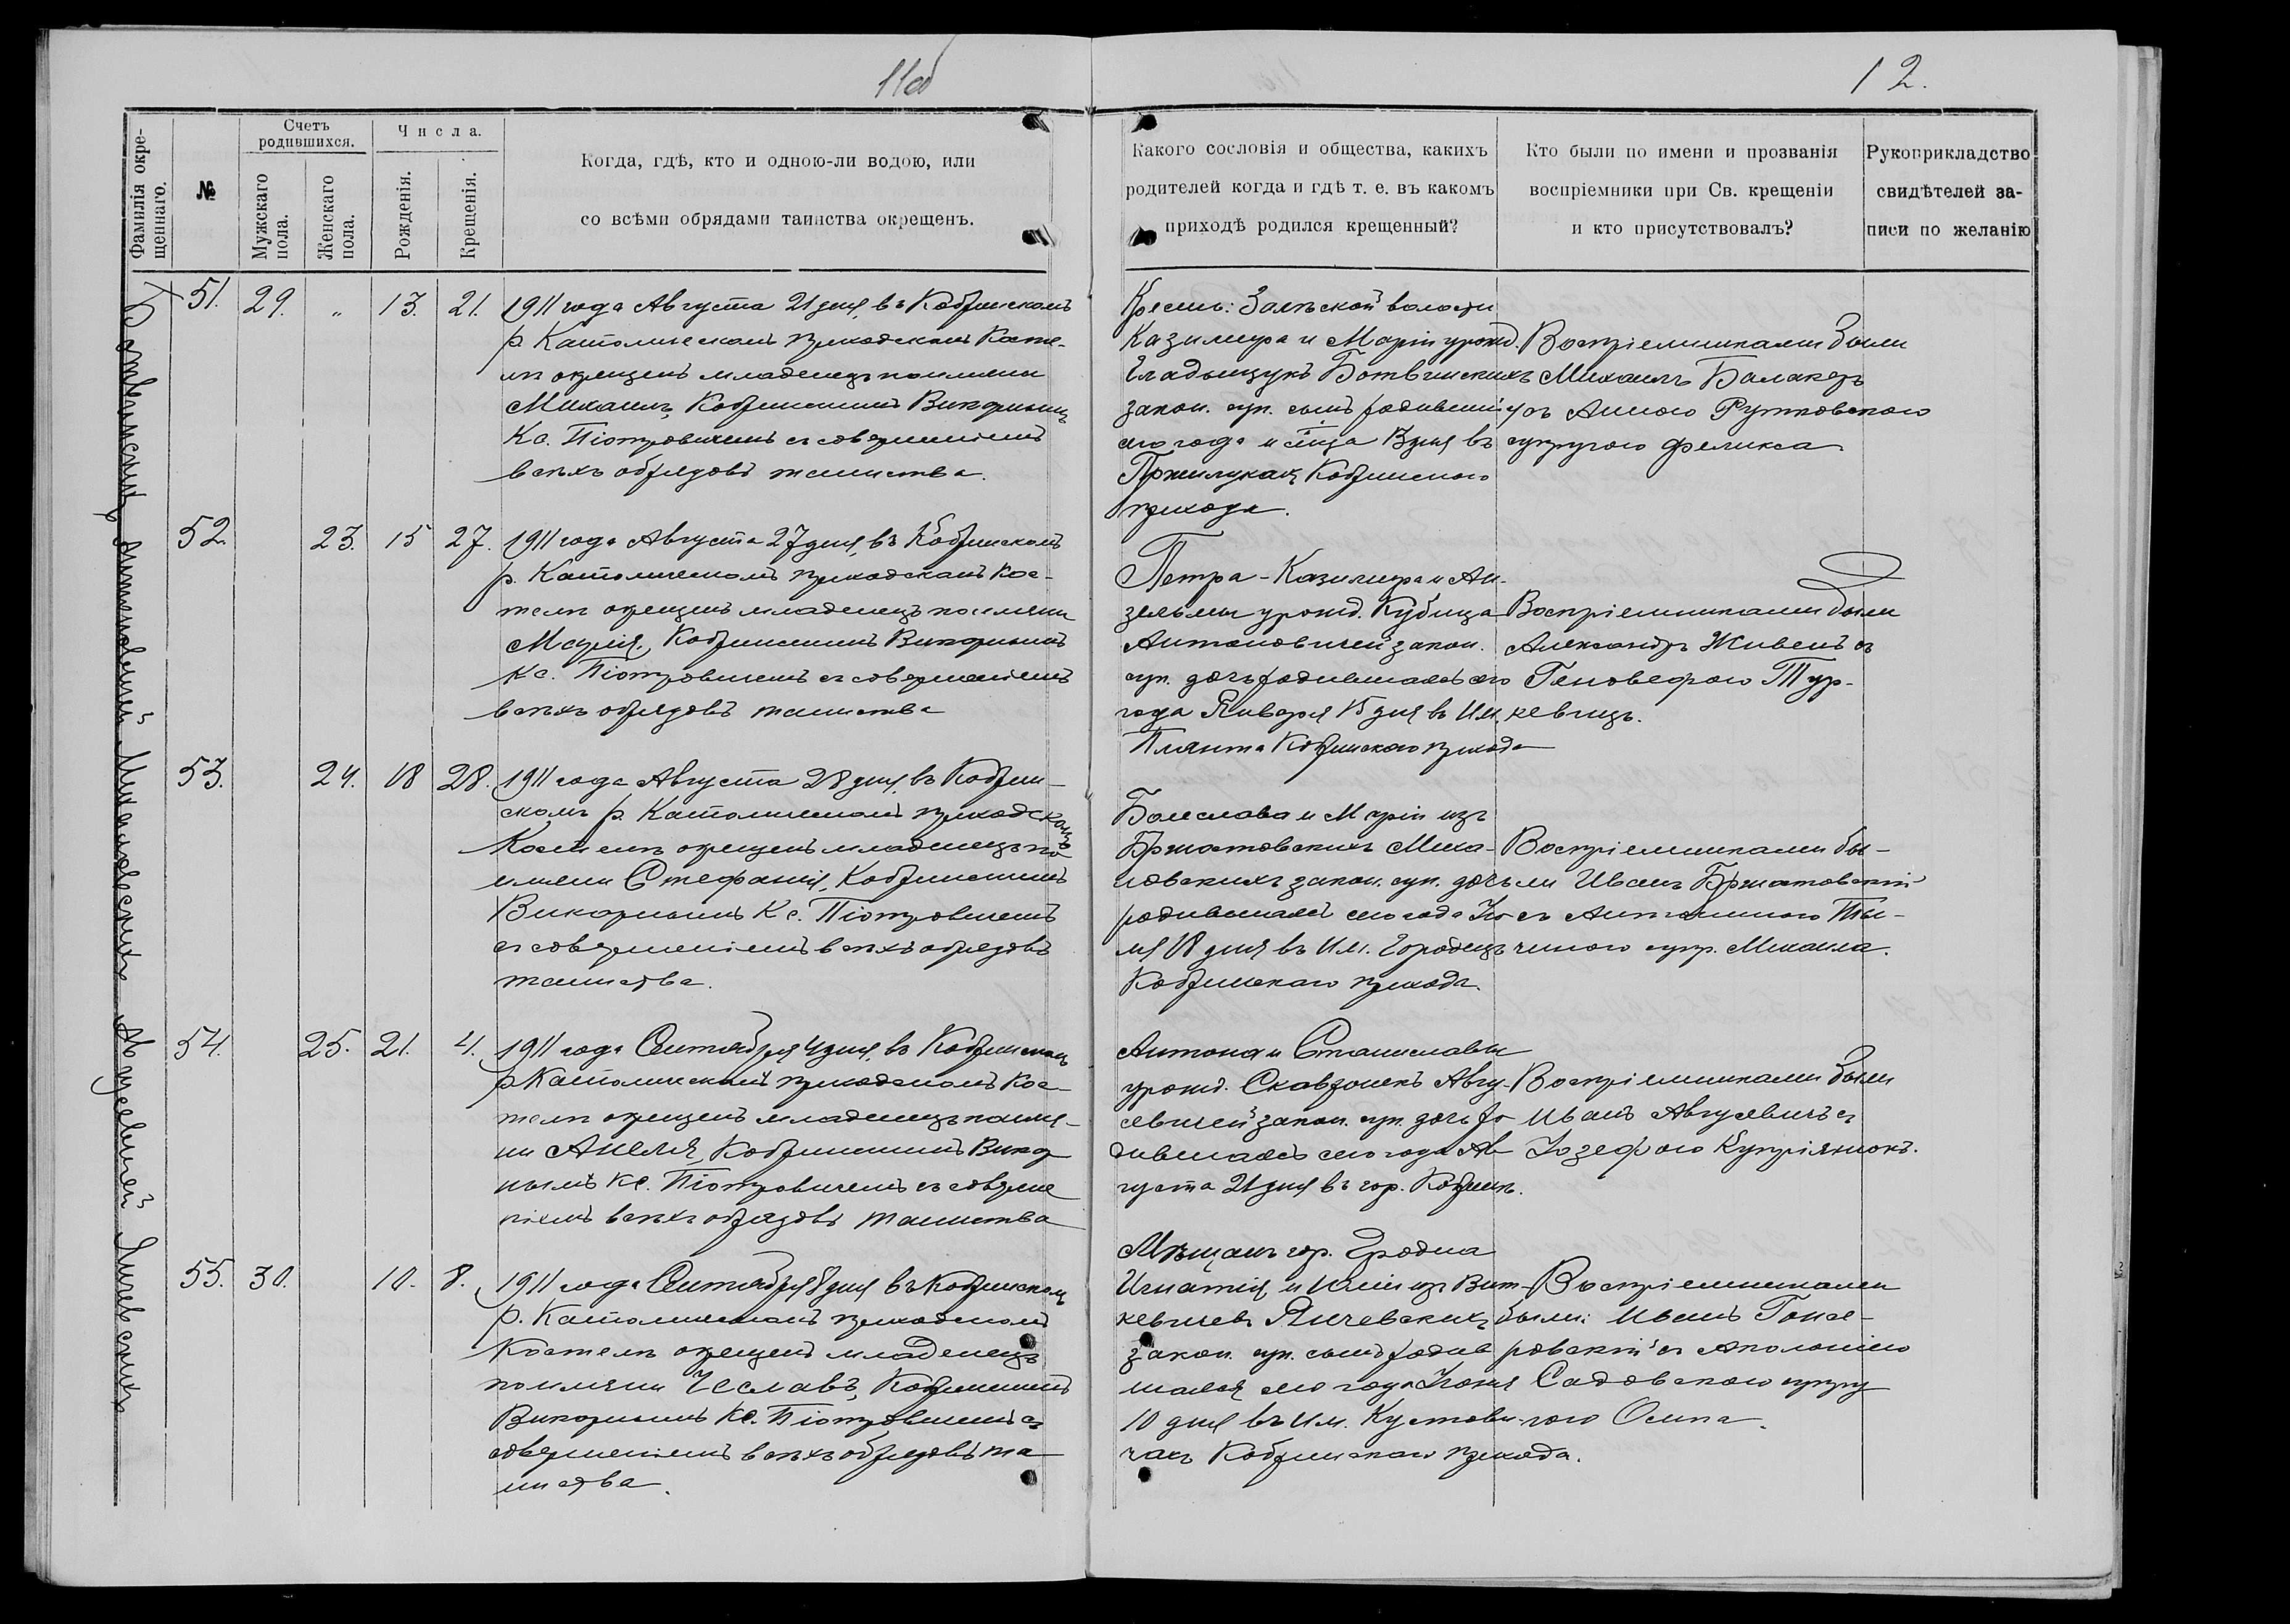 11об
12.
Фамилія окрещеннаго.
№
Счетъ родившихся.
Мужскаго пола.
Женскаго пола.
Числа.
Рожденія.
Крещенія.
Когда, гдѣ, кто и одною-ли водою, или
со всѣми обрядами таинства окрещенъ.
Какого сословія и общества, какихъ
родителей когда и гдѣ т. е. въ какомъ
приходѣ родился крещенный?
Кто были по имени и прозванія
воспріемники при Св. крещеніи
и кто присутствовалъ?
Рукоприкладство
свидѣтелей за-
писи по желанію
Ботвинскихъ
51. 29. „ 13. 21.
1911 года Августа 21 дня, въ Кобринскомъ
р. Католическомъ приходскомъ Косте-
лѣ окрещенъ младенецъ по имени
Михаилъ, Кобринскимъ Викарнымъ
Кс. Піотровичемъ съ совершеніемъ
всѣхъ обрядовъ таинства.
Крестъ: Залѣской волости
Казимира и Маріи урожд.
Гладыщукъ Ботвинскихъ
закон. суп. сынъ родившійся
сего года и м-ца 13 дня въ
Пржилукахъ Кобринского
прихода.
Воспріемниками были
Михаилъ Балакеръ
съ Анною Рутковскою
супругою Феликса
Антоновичей
52. 23. 15 27.
1911 года Августа 27 дня, въ Кобринскомъ
р. Католическомъ приходскомъ Кос-
телѣ окрещенъ младенецъ по имени
Марія, Кобринскимъ Викарнымъ
Кс. Піотровичемъ съ совершеніемъ
всѣхъ обрядовъ таинства
Петра-Казимира и Ан-
зельмы урожд. Кубица
Антоновичей закон.
суп. дочь родившаяся сего
года Января 15 дня въ Им.
Плянта Кобринского прихода
Воспріемниками были
Александръ Живень съ
Геновефою Тур-
кевичъ.
Михаловскихъ
53. 24. 18 28.
1911 года Августа 28 дня, въ Кобрин-
скомъ р. Католическомъ приходскомъ
Костелѣ окрещенъ младенецъ по
имени Стефанія, Кобринскимъ
Викарнымъ Кс. Піотровичемъ
съ совершеніемъ всѣхъ обрядовъ
таинства.
Болеслава и Маріи изъ
Бржозовскихъ Миха-
ловскихъ закон. суп. дочь
родившаяся сего года Ію-
ля 18 дня въ Им. Городецъ
Кобринскаго прихода.
Воспріемниками бы-
ли Иванъ Бржозовскій
съ Антониною Ты-
чиною супр. Михаила.
Авгусевичей
54. 25. 21. 4.
1911 года Сентября 4 дня, въ Кобринскомъ
р. Католическомъ приходскомъ Кос-
телѣ окрещенъ младенецъ по име-
ни Анеля, Кобринскимъ Викар
нымъ Кс. Піотровичемъ съ соверше
ніемъ всѣхъ обрядовъ таинства
Антона и Станиславы
урожд. Скавронекъ Авгу-
севичей закон. суп. дочь ро
дившаяся сего года Ав
густа 21 дня въ гор. Кобринѣ.
Воспріемниками были
Иванъ Авгусевичъ съ
Іозефою Купріянюкъ.
Янчевскихъ
55. 30. 10. 8.
1911 года Сентября 8 дня въ Кобринскомъ
р. Католическомъ приходскомъ
Костелѣ окрещенъ младенецъ
по имени Чеславъ, Кобринскимъ
Викарнымъ Кс. Піотровичемъ съ
совершеніемъ всѣхъ обрядовъ та
инства.
Мѣщанъ гор. Гродна
Игнатія и Юліи изъ Вит-
кевичевъ Янчевскихъ
закон. суп. сынъ родив
шійся сего года Іюня
10 дня въ Им. Кустови-
чахъ Кобринскаго прихода.
Воспріемниками
были: Иванъ Гонсе-
ровскій съ Аполонією
Садовскою супру
гою Осипа.